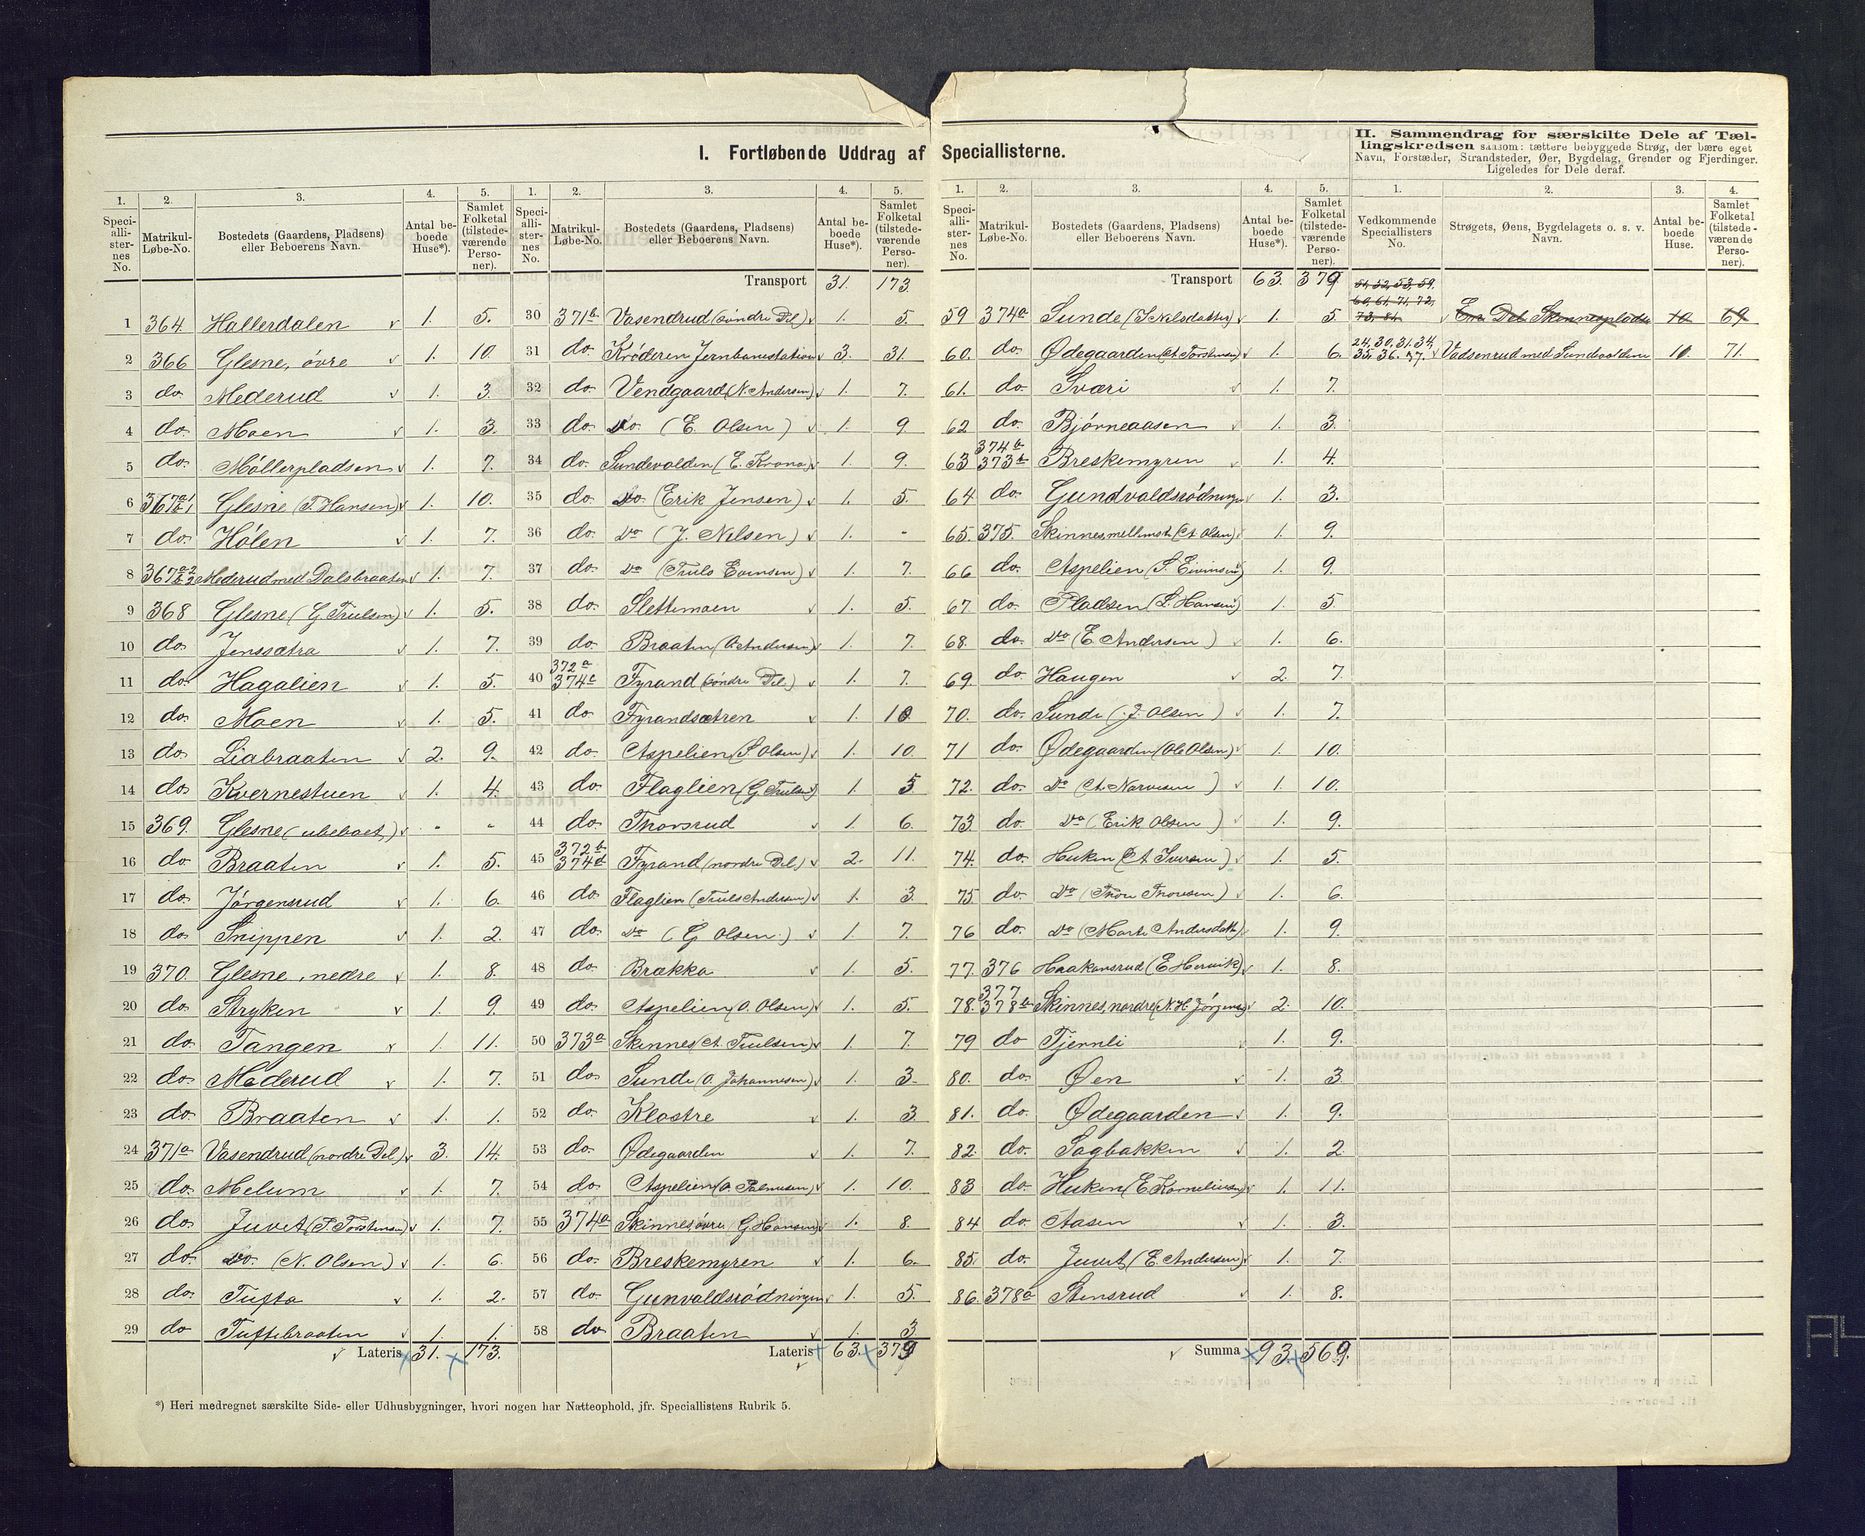 I. Fortløbende Uddrag af Speciallisterne.
1. 2. 3. 4. 5.
Speciallisternes No. Matrikul-Løbe-No. Bostedets (Gaardens, Pladsens) eller Beboerens Navn. Antal beboede Huse*). Samlet Folketal (tilstedeværende Personer).
1 364 Hallerdalen v 1. 5.
2 366 Glesne, øvre v 1. 10.
3 do Mederud v 1. 3.
4 do. Moen v 1. 3.
5 do. Möllerpladsen v 1. 7.
6 367a1 b1 Glesne (T. Hansen) v 1. 10.
7 do. Hólen v 1. 7.
8 367a2 b2 Mederud med Dalsbraaten v 1. 7.
9 368 Glesne (G. Trulsen) v 1. 5.
10 do. Jenssætra v 1. 7.
11 do. Hagalien v 1. 5.
12 do Moen v 1. 5.
13 do. Liabraaten v 2. 9.
14 do. Kvernestuen v 1. 4.
15 369. Glesne (ubeboet,) v - -
16 do Braaten v 1. 5.
17 do. Jørgensrud v 1. 6.
18 do. Snippen v 1. 2.
19 370. Glesne, nedre v 1. 8.
20 do. Stryken v 1. 9.
21 do. Tangen v 1. 11.
22 do. Mederud v 1. 7.
23 do. Braaten v 1. 1.
24 371a Vasendrud (nordre Del) v 3. 14.
25 do. Melum v 1. 7.
26 do. Juvet (T. Torstensen) v 1. 7.
27 do. Do. (N. Olsen) v 1. 6.
28 do. Tufta v 1. 2.
29 do Tuftebraaten v 1. 1.
v Lateris 31. 173.
*) Heri medregnet særskilte Side- eller Udhusbygninger, hvori nogen har Natteophold, jfr. Speciallistens Rubrik 5.
1. 2. 3. 4. 5.
Speciallisternes No. Matrikul-Løbe-No. Bostedets (Gaardens, Pladsens) eller Beboerens Navn. Antal beboede Huse*). Samlet Folketal (tilstedeværende Personer).
Transport 31. 173.
30 371b Vasendrud (søndre Del) v 1. 5.
31 do. Krøderen Jernbanestation v 3. 31.
32 do. Vendgaard (N. Andersen) v 1. 7.
33 do. Do. (E. Olsen) v 1. 9.
34 do. Sundevolden (E. Krona) v 1. 9.
35 do. Do. (Erik Jensen) v 1. 5.
36 do. Do (J. Nilsen) v 1. -
37 do. Do (Truls Evensen) v 1. 7.
38 do. Slettemoen v 1. 5.
39 do. Braaten (A. Andersen) v 1. 7.
40 372a 374c Fyrand (søndre Del) v 1. 7.
41 do. Fyrandsætren v 1. 10
42 do. Aspelien (S. Olsen) v 1. 10.
43 do. Flaglien (G. Trulsen) 1. 5
44 do. Thorsrud v 1. 6.
45 372b 374d Fyrand (nordre Del) v 2. 11.
46 do. Flaglien (Truls Andersen) v 1. 3.
47 do. Do (G Olsen.) v 1. 7.
48 do. Brække v 1. 5.
49 do. Aspelien (O. Olsen) v 1. 5.
50 373a Skinnes (A. Trulsen) v 1. 7.
51 do. Sunde (O. Johannesen) v 1. 3.
52 do. Klostre v 1. 3.
53 do. Ødegaarden v 1. 7.
54 do. Aspelien (O. Palmesen) v 1. 10.
55 374a Skinnes, øvre G. Hansen) v 1. 8.
56 do. Breskemyren v 1. 6.
57 do. Gunvaldsrødningen v 1. 5.
58 do Braaten v 1. 3
Lateris 63. 379
1. 2. 3. 4. 5.
Speciallisternes No. Matrikul-Løbe-No. Bostedets (Gaardens, Pladsens) eller Beboerens Navn. Antal beboede Huse*). Samlet Folketal (tilstedeværende Personer).
Transport 63. 379
59 374a Sunde (S Nilsdatter) v 1. 5
60. do. Ødegaarden (A. Torstensen) v 1. 6.
61. do Sværi v 1. 7.
62 do. Bjørneaasen v 1. 3.
63 374b 373b Breskemyren v 1. 4.
64 do. Gundvaldsrødningen 1. 3.
65. 375. Skinnes, mellemst (A. Olsen) v 1. 9.
66 do. Aspelien (S. Eivinsen) 1. 9.
67. do. Pladsen (L. Hansen) 1. 5
68. do. Do (E. Andersen) v 1. 6.
69. do Haugen v 2. 7.
70. do. Sunde (J. Olsen) v 1. 7.
71 do. Ødegaarden (Ole Olsen) v 1. 10.
72. do. Do (A. Narvesen) v 1. 10.
73. do. Do (Erik Olsen) v 1. 9.
74. do. Huken (A. Iversen) v 1. 5.
75 do. Do (Thor Thorsen) v 1. 6.
76 do. Do (Marte Andersdatt.) v 1. 9.
77. 376 Haakonsrud (E. Hervik) v 1. 8.
78. 377 378b Skinnes, nordre (N. H. Jørgens) v 2. 10.
79 do Tjernli v 1. 9.
80. do. Øen v 1. 3
81. do. Ødegaarden v 1. 9.
82. do. Sagbakken v 1. 2
83 do. Huken (E. Korneliusen) v 1. 11.
84 do. Aasen v 1. 3.
85. do. Juvet (E. Andersen) v 1. 7.
86. 378a Stensrud v 1. 8.
v Summa 93. 569.
II. Sammendrag for særskilte Dele af Tællingskredsen saasom: tættere bebyggede Strøg, der bære eget
Navn, Forstæder, Strandsteder, Øer, Bygdelag, Grender og Fjerdinger.
Ligeledes for Dele deraf.
1. 2. 3. 4.
Vedkommende Speciallisters No. Strøgets, Øens, Bygdelagets o. s. v. Navn. Antal beboede Huse. Samlet Folketal (tilstedeværende Personer).
51, 52, 53, 59.
60, 61, 71, 72,
73, 81. v En Del Skinnespladse 10 69
24, 30, 31. 34,
35. 36. 37. v Vadsenrud med Sundvolden 10. 71.